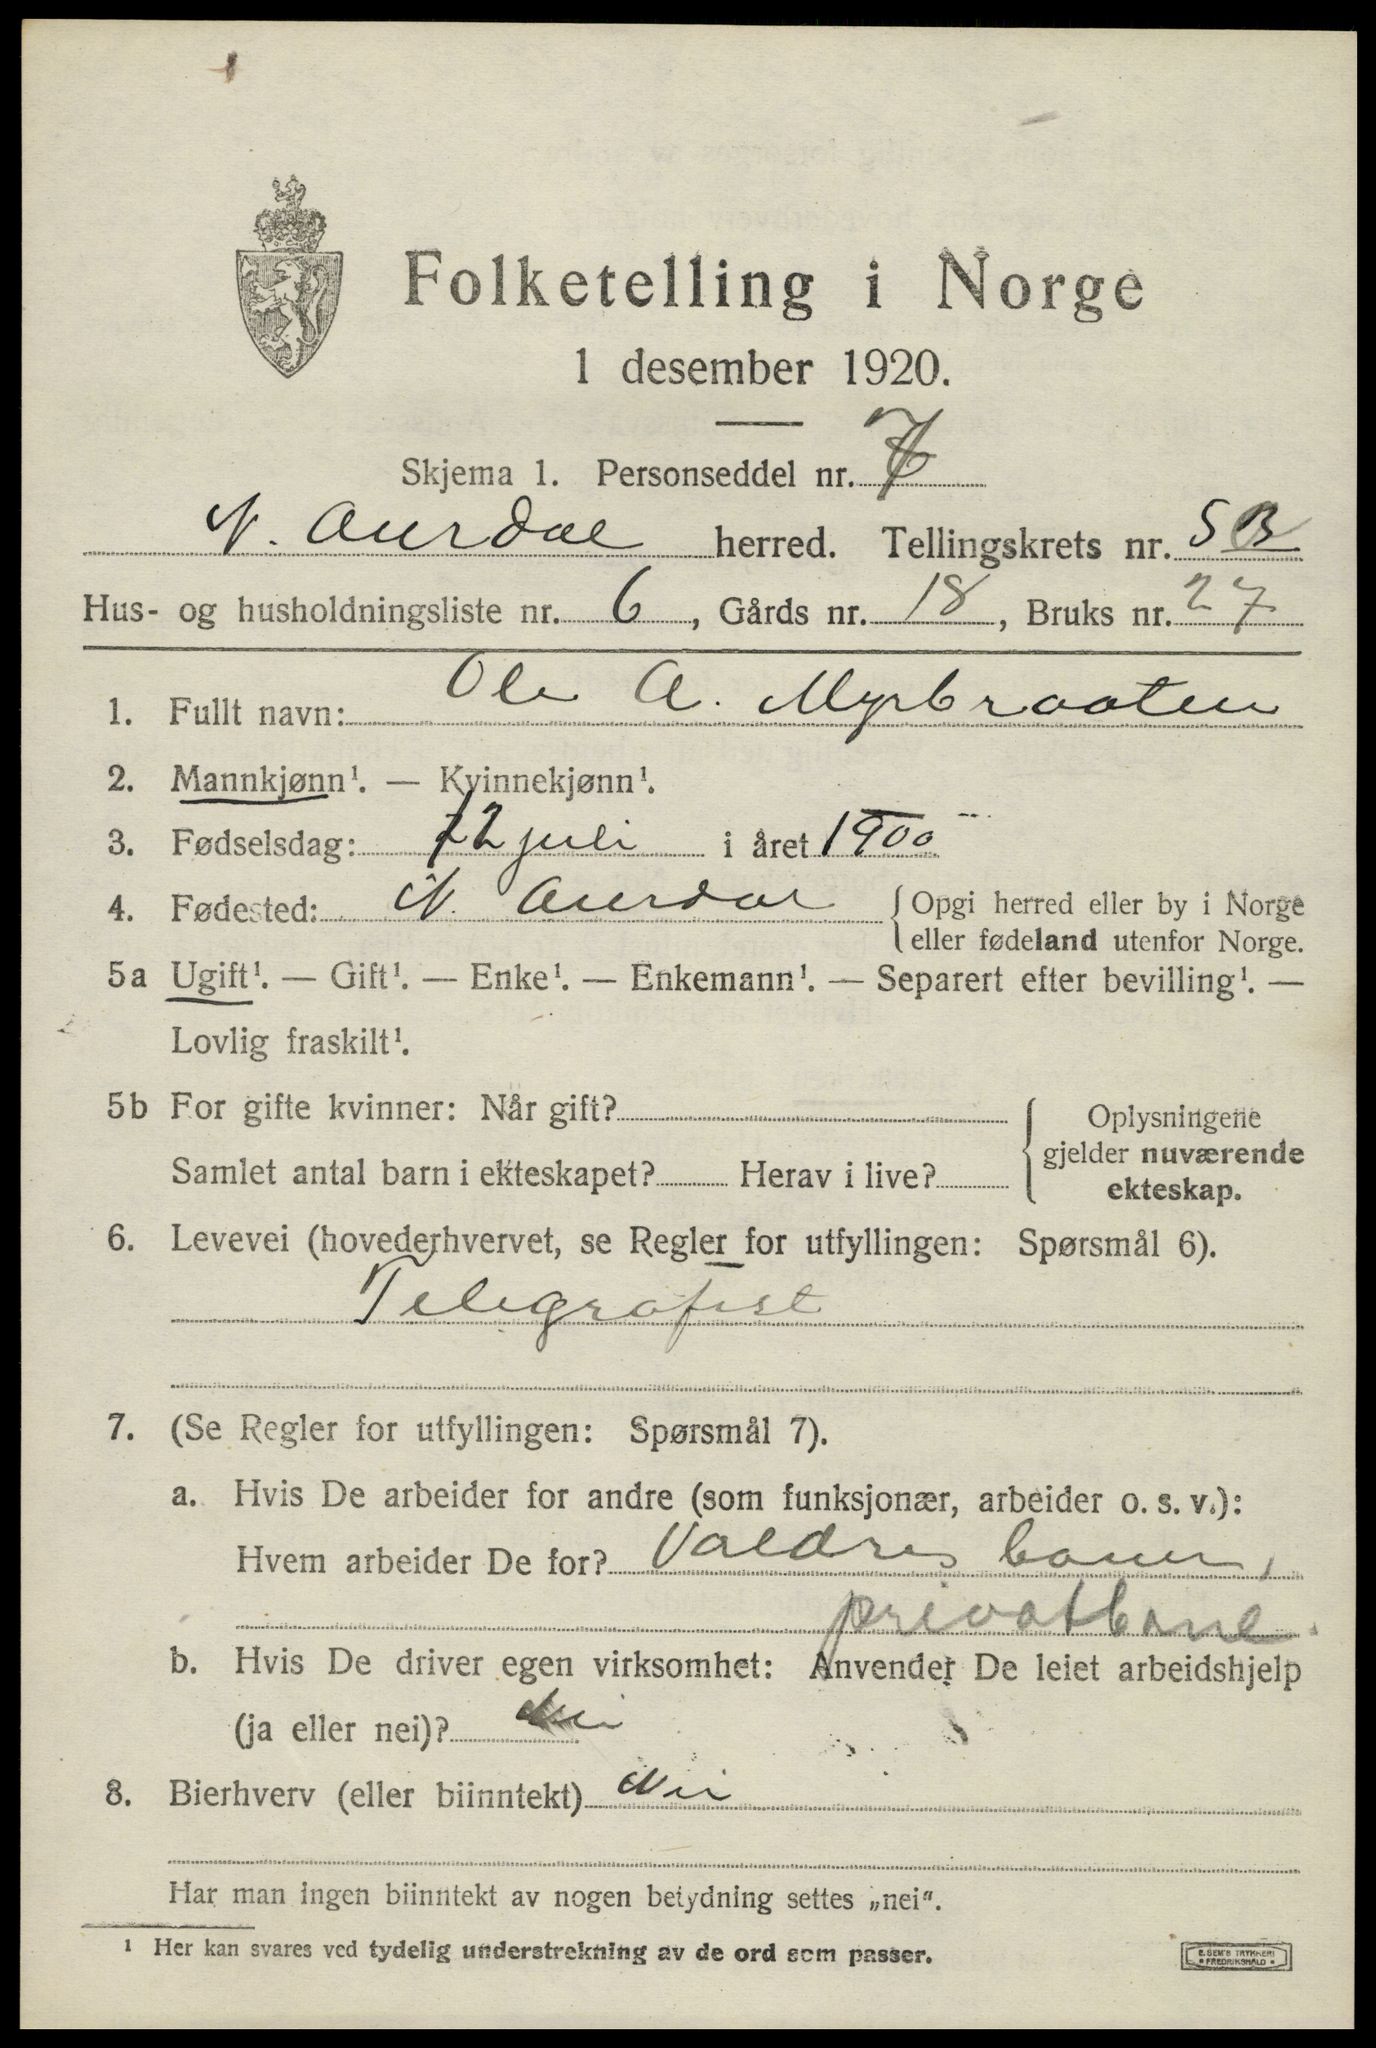 Folketelling i Norge
1 desember 1920.
Skjema 1. Personseddel nr. 7
N. Aurdal herred. Tellingskrets nr. 5 B
Hus- og husholdningsliste nr. 6, Gårds nr. 18, Bruks nr. 27
1. Fullt navn: Ole A. Myrbraaten
2. Mannkjønn¹. — Kvinnekjønn¹.
3. Fødselsdag: 12 juli i året 1900
4. Fødested: N. Aurdal {Opgi herred eller by i Norge
eller fødeland utenfor Norge.
5a Ugift¹. — Gift¹. — Enke¹. — Enkemann¹. — Separert efter bevilling¹. —
Lovlig fraskilt¹.
5b For gifte kvinner: Når gift?
Samlet antal barn i ekteskapet? Herav i live?
{Oplysningene
gjelder nuværende
ekteskap.
6. Levevei (hovederhvervet, se Regler for utfyllingen: Spørsmål 6).
Telegrafist
7. (Se Regler for utfyllingen: Spørsmål 7).
a. Hvis De arbeider for andre (som funksjonær, arbeider o. s. v.):
Hvem arbeider De for? Valdresbanen,
privatbane.
b. Hvis De driver egen virksomhet: Anvender De leiet arbeidshjelp
(ja eller nei)? Nei
8. Bierhverv (eller biinntekt) Nei
Har man ingen biinntekt av nogen betydning settes „nei".
¹ Her kan svares ved tydelig understrekning av de ord som passer.
E. SEM'S TRYKKERI
FREDRIKSHALD